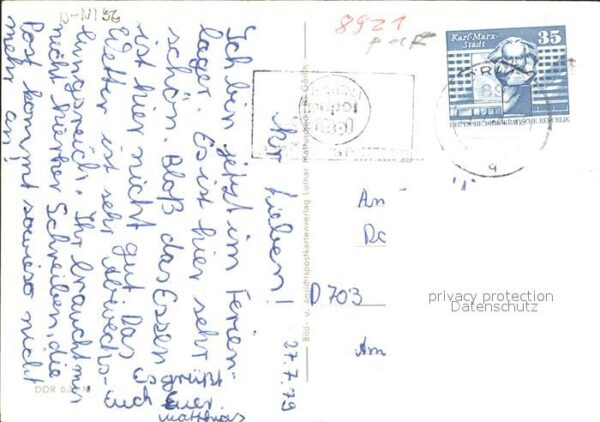 B-N156
8921
Karl-Marx-
Stadt
35
DEUTSCHE DEMOKRATISCHE REPUBLIK
27.7.79
Ihr Lieben!
Ich bin jetzt im Ferien-
lager. Es ist hier sehr
schön. Bloß das Essen
ist hier nicht gut. Das
Wetter ist sehr abwechs-
lungsreich. Ihr braucht mir
nicht hierher Schreiben, die
Post kommt sowieso nicht
mehr an!
Es grüßt
Euch Euer
Matthias
An
D703
Am
privacy protection
Datenschutz
Bild- u. Ansichtspostkartenverlag Lothar
DDR